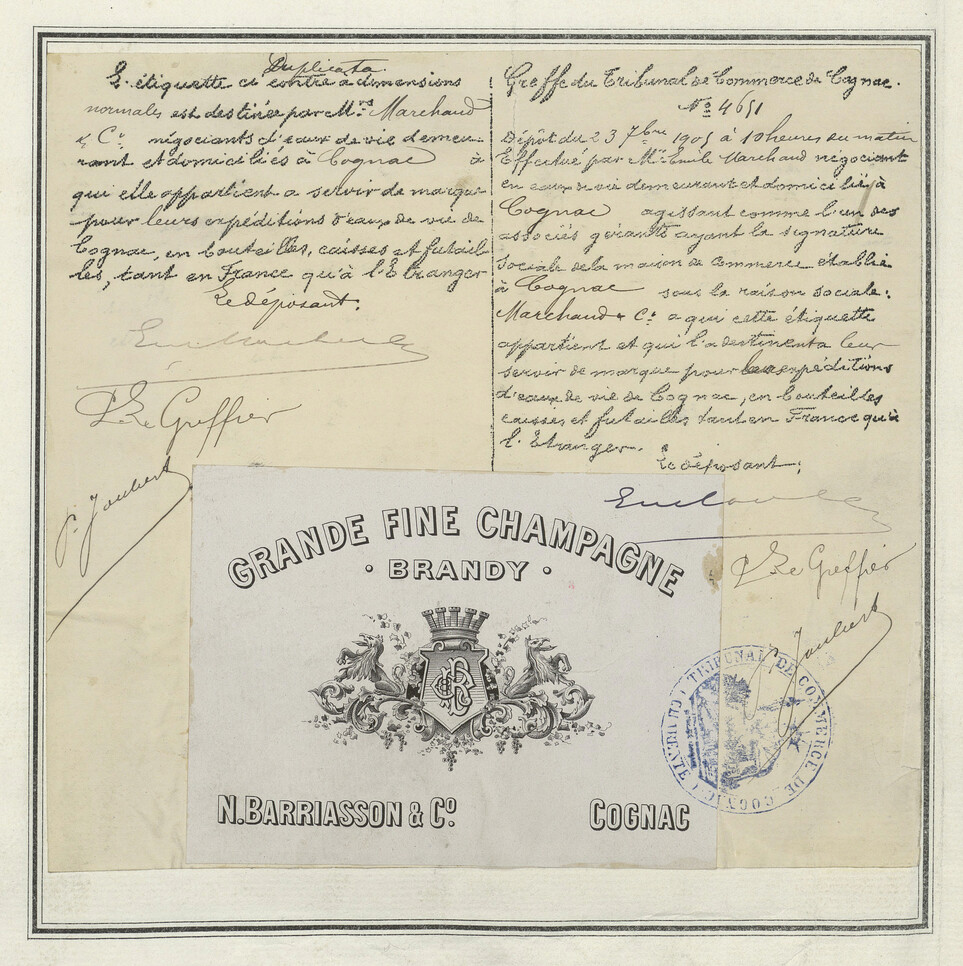 Duplicata
L'étiquette ci contre a dimensions
normales est destinée par Mrs Marchand
& Co négociants d'eaux de vie demeu-
rant et domiciliés à Cognac à
qui elle appartient a servir de marque
pour leurs expéditions d'eaux de vie de
Cognac, en bouteilles, caisses et futail
les, tant en France qu'à l'Etranger
Le déposant.
P. Le Greffier
P. Joubert
Greffe du Tribunal de Commerce de Cognac.
No 4651
Dépôt du 23 7bre 1905 à 10 heures du matin
Effectué par Mr Emile Marchand négociant
en eaux de vie demeurant et domicilié à
Cognac agissant comme l'un des
associés gérants ayant la signature
sociale de la maison de commerce établie
à Cognac sous la raison sociale:
Marchand & Co a qui cette étiquette
appartient et qui l'a destinent a leur
servir de marque pour leurs expéditions
d'eaux de vie de Cognac, en bouteilles
caisses et futailles tant en France qu'à
l'Etranger.
Le déposant:
P. Le Greffier
P. Joubert
GRANDE FINE CHAMPAGNE
· BRANDY ·
N. BARRIASSON & Co.
COGNAC
TRIBUNAL DE COMMERCE DE COGNAC